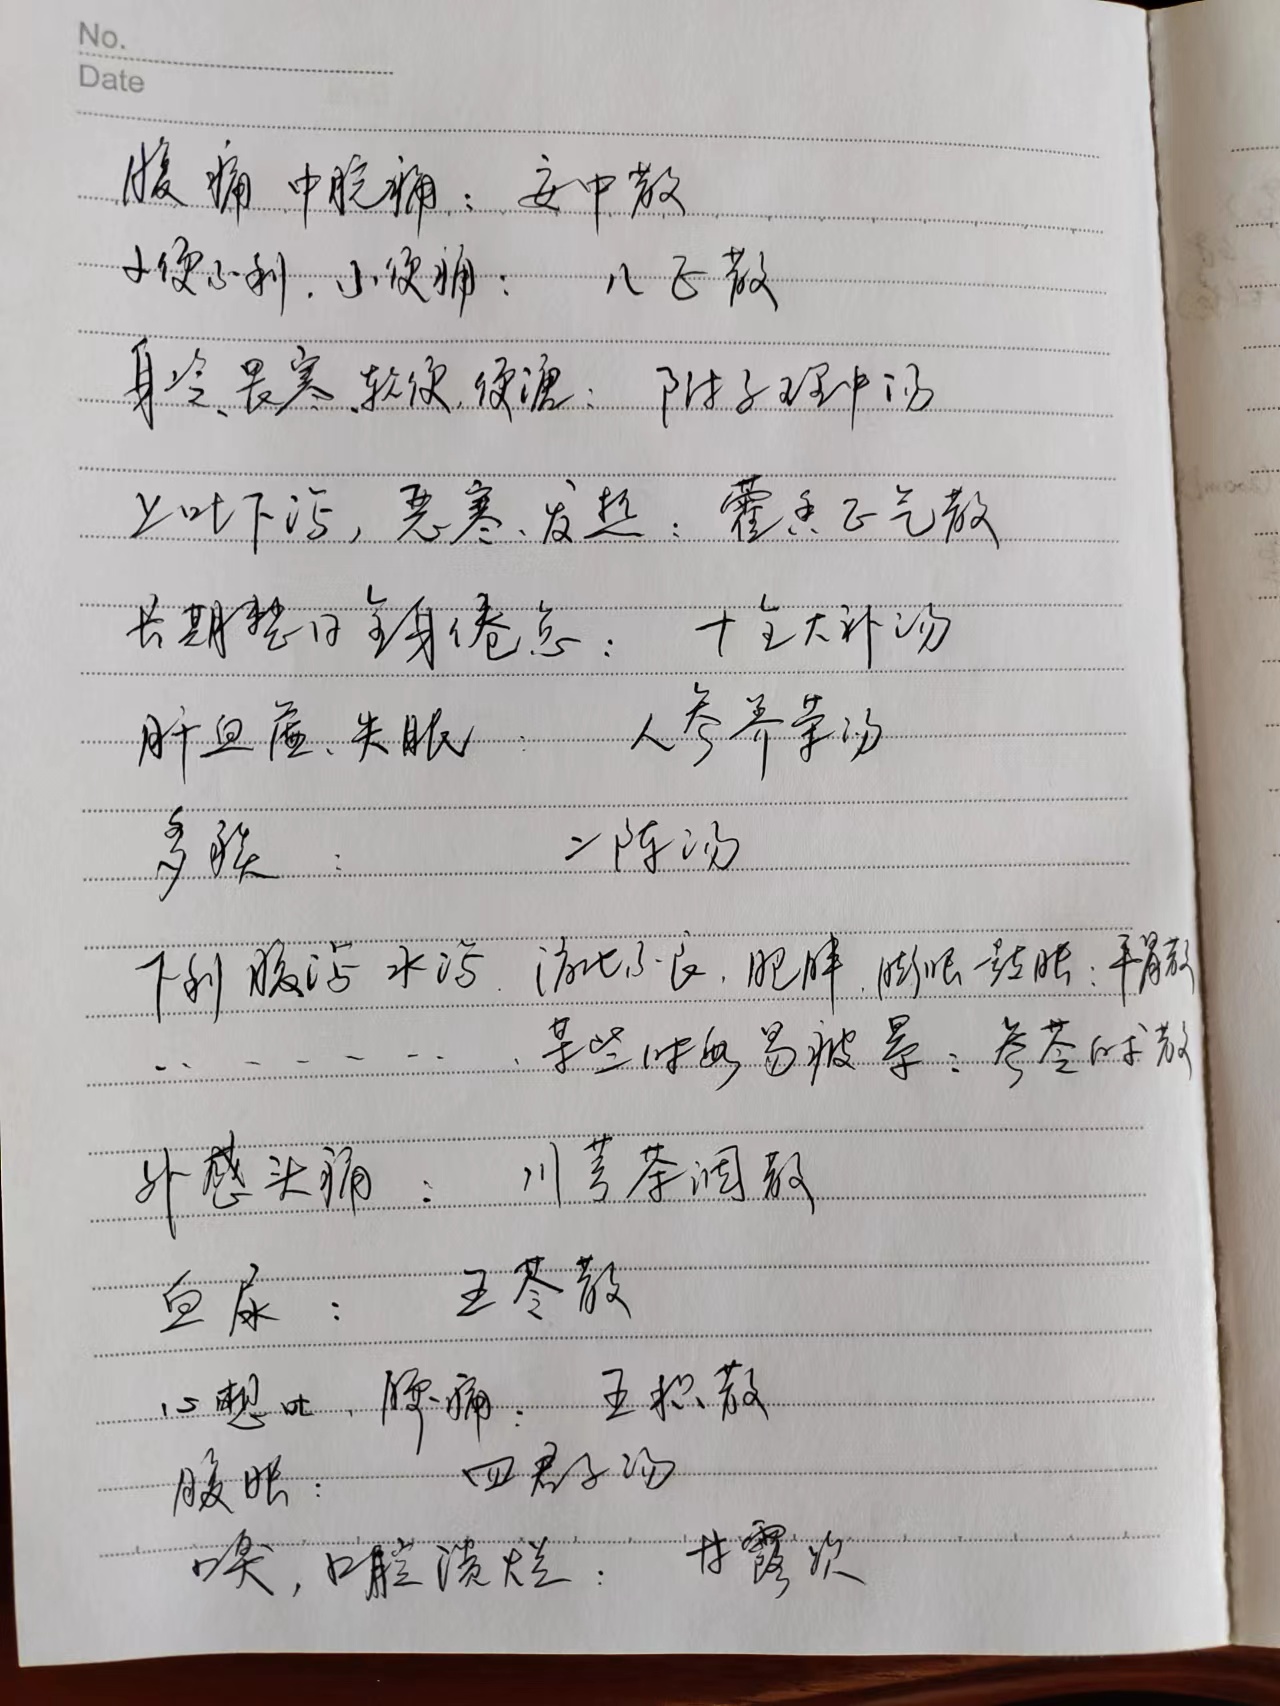 No.
Date
腹痛 中脘痛：安中散
小便不利．小便痛：八正散
身冷、畏寒、软便，便溏：附子理中汤
上吐下泻，恶寒、发热：藿香正气散
长期整日全身倦怠：十全大补汤
肝血虚、失眠：人参养荣汤
多痰：二陈汤
下利 腹泻 水泻．消化不良．肥胖．膨胀 鼓胀：平胃散
某些味 易疲 ：参苓白术散
外感头痛：川芎茶调散
血尿：五苓散
心想吐、腰痛：五积散
腹胀：四君子汤
口臭，口腔溃烂：甘露饮